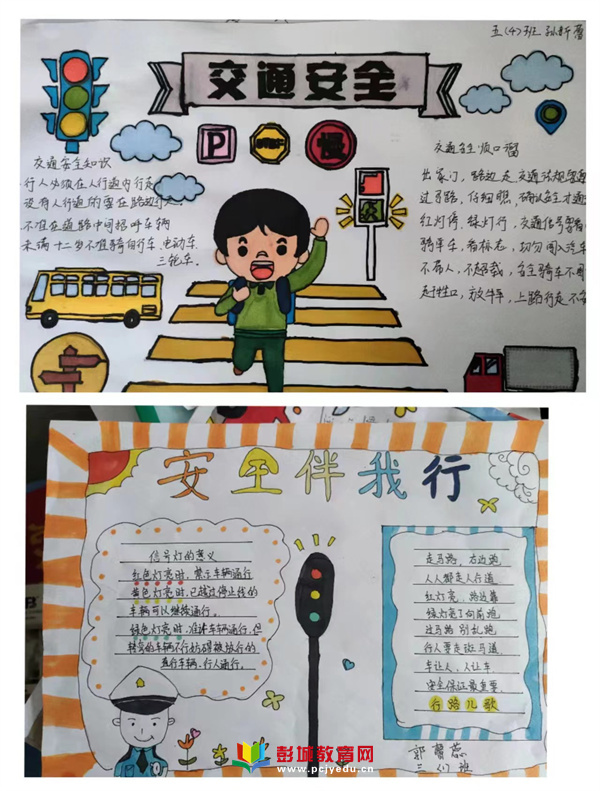 五（4）班 孙新蕾
交通安全
P
STOP
慢
交通安全知识
行人必须在人行道内行走
没有人行道的要在路边行走.
不准在道路中间招呼车辆
未满十二岁不准骑自行车、电动车
三轮车.
交通安全顺口溜
出家门, 路边走 交通法规要遵
过马路, 仔细瞧, 确认安全才通
红灯停, 绿灯行, 交通信号要看
骑单车, 有标志, 切勿闯入汽车
不带人, 不超载, 安全骑车不
赶牲口, 放牛车, 上路行走不
安全伴我行
信号灯的意义
红色灯亮时, 禁止车辆通行
黄色灯亮时, 已越过停止线的
车辆可以继续通行。
绿色灯亮时, 准许车辆通行, 但
转弯的车辆不行妨碍被放行的
直行车辆、行人通行。
走马路, 右边跑
人人都走人行道
红灯亮, 路边靠
绿灯亮了向前跑
过马路 别乱跑
行人要走斑马道
车让人, 人让车
安全保证最重要
行路儿歌
郭馨蕊
三 班
彭城教育网
www.pcjyedu.cn